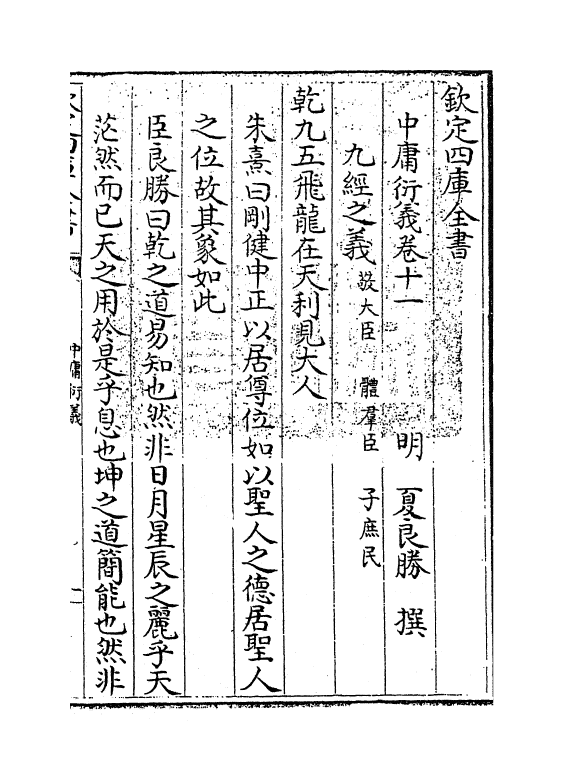 欽定四庫全書
中庸衍義卷十一　明　夏良勝　撰
九經之義敬大臣　體羣臣　子庶民
乾九五飛龍在天利見大人
朱熹曰剛健中正以居尊位如以聖人之德居聖人
之位故其象如此
臣良勝曰乾之道易知也然非日月星辰之麗乎天
茫然而已天之用於是乎息也坤之道簡能也然非
中庸衍義
一